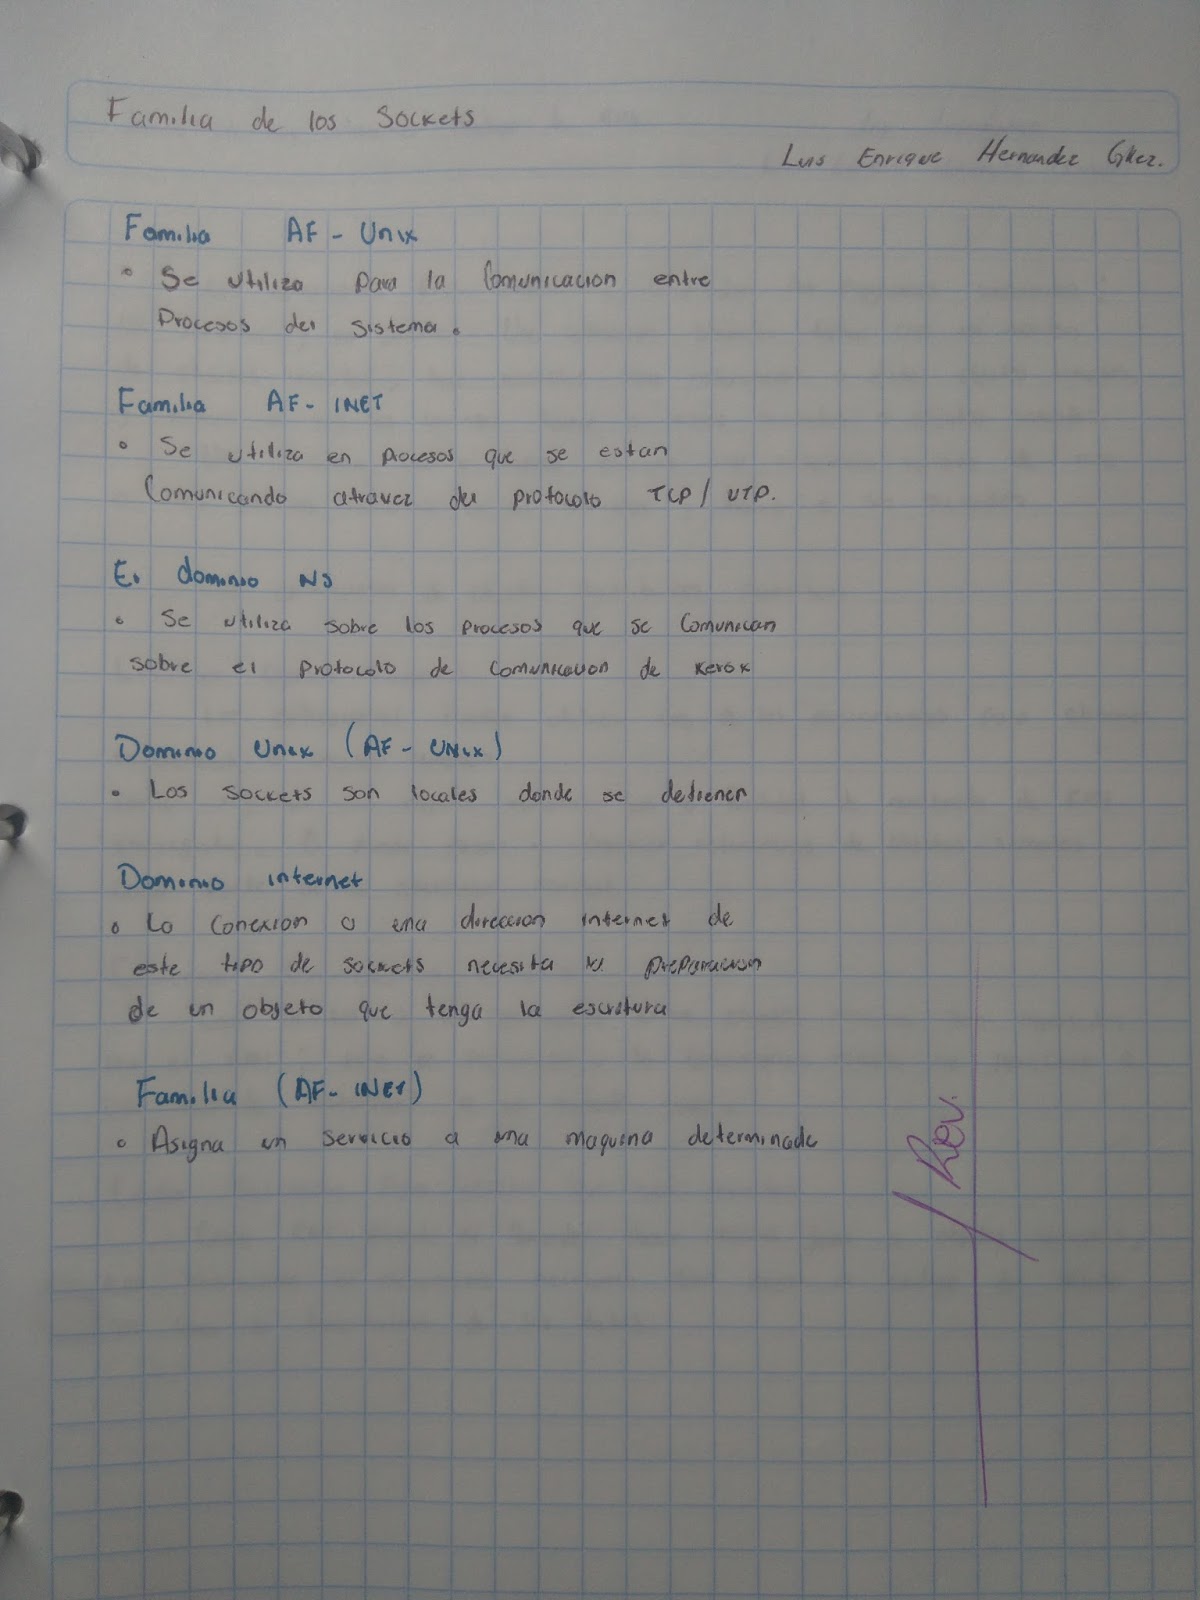 Familia de los Sockets
Luis Enrique Hernandez Gllez.
Familia AF - Unix
• Se utiliza para la Comunicacion entre
Procesos del sistema.
Familia AF - INET
• Se utiliza en procesos que se estan
Comunicando atravez del protocolo TCP / UTP.
El dominio NS
• Se utiliza sobre los procesos que se Comunican
sobre el protocolo de comunicacion de Xerox
Dominio Unix (AF - UNix)
• Los sockets son locales donde se detienen
Dominio internet
• La Conexion a una direccion internet de
este tipo de sockets necesita la preparacion
de un objeto que tenga la escritura
Familia (AF - INET)
• Asigna un servicio a una maquina determinada
Rev.